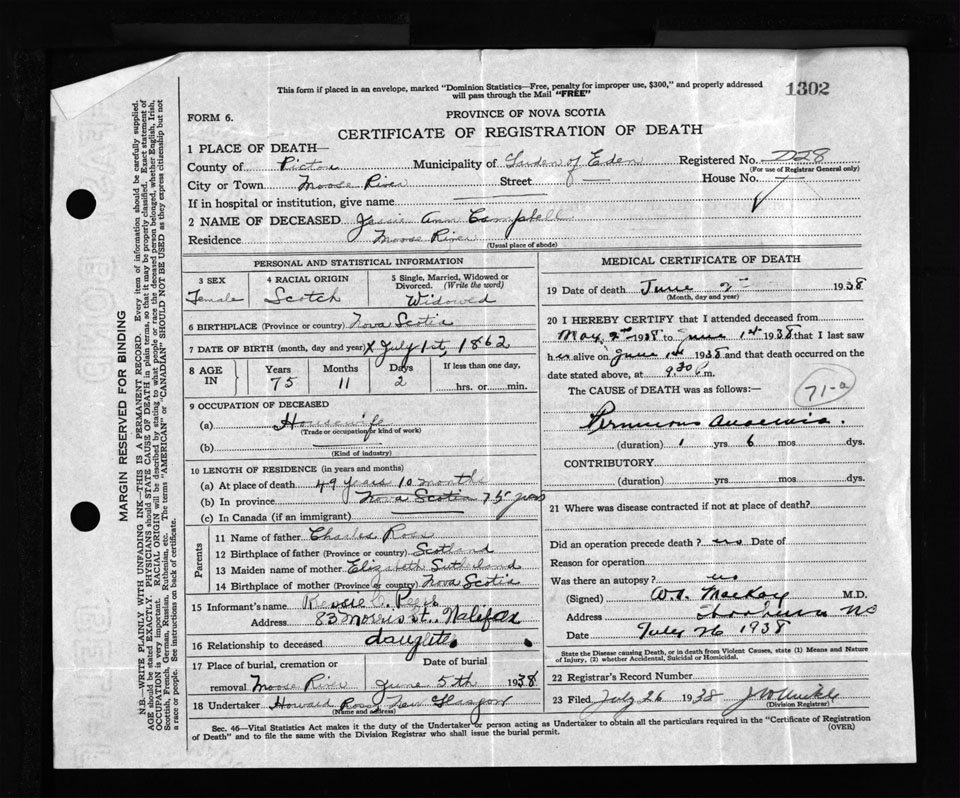 This form if placed in an envelope, marked "Dominion Statistics—Free, penalty for improper use, $300," and properly addressed
will pass through the Mail "FREE"
1302
FORM 6.
PROVINCE OF NOVA SCOTIA
CERTIFICATE OF REGISTRATION OF DEATH
1 PLACE OF DEATH—
County of Pictou Municipality of Garden of Eden Registered No. D28
(For use of Registrar General only)
City or Town Moose River Street — House No. —
If in hospital or institution, give name
2 NAME OF DECEASED Jessie Ann Campbell
Residence Moose River
(Usual place of abode)
PERSONAL AND STATISTICAL INFORMATION
3 SEX Female
4 RACIAL ORIGIN Scotch
5 Single, Married, Widowed or Divorced. (Write the word) Widowed
6 BIRTHPLACE (Province or country) Nova Scotia
7 DATE OF BIRTH (month, day and year) X July 1st, 1862
8 AGE IN Years 75 Months 11 Days 2 If less than one day, hrs. or min.
9 OCCUPATION OF DECEASED
(a) Housewife
(Trade or occupation or kind of work)
(b)
(Kind of industry)
10 LENGTH OF RESIDENCE (in years and months)
(a) At place of death 49 years 10 months
(b) In province Nova Scotia 75 years
(c) In Canada (if an immigrant)
Parents
11 Name of father Charles Ross
12 Birthplace of father (Province or country) Scotland
13 Maiden name of mother Elizabeth Sutherland
14 Birthplace of mother (Province or country) Nova Scotia
15 Informant's name
Address 83 Morris st. Halifax
16 Relationship to deceased daughter
17 Place of burial, cremation or removal Moose River
Date of burial June 5th 1938
18 Undertaker Howard Ross, New Glasgow
(Name and address)
MEDICAL CERTIFICATE OF DEATH
19 Date of death June 2nd 1938
(Month, day and year)
20 I HEREBY CERTIFY that I attended deceased from
May 2nd 1938 to June 1st 1938 that I last saw
her alive on June 1st 1938 and that death occurred on the
date stated above, at 9.30 P.m.
The CAUSE of DEATH was as follows:—
71-a
Pernicious anaemia.
(duration) 1 yrs 6 mos dys.
CONTRIBUTORY
(duration) yrs mos dys.
21 Where was disease contracted if not at place of death?
Did an operation precede death? no Date of
Reason for operation
Was there an autopsy? no
(Signed) MacKay M.D.
Address NS
Date July 26 1938
State the Disease causing Death, or in death from Violent Causes, state (1) Means and Nature
of Injury, (2) whether Accidental, Suicidal or Homicidal.
22 Registrar's Record Number
23 Filed July 26 1938
(Division Registrar)
Sec. 46—Vital Statistics Act makes it the duty of the Undertaker or person acting as Undertaker to obtain all the particulars required in the "Certificate of Registration
of Death" and to file the same with the Division Registrar who shall issue the burial permit.
(OVER)
MARGIN RESERVED FOR BINDING
N.B.—WRITE PLAINLY WITH UNFADING INK—THIS IS A PERMANENT RECORD. Every item of information should be carefully supplied.
AGE should be stated EXACTLY. PHYSICIANS should STATE CAUSE OF DEATH in plain terms, so that it may be properly classified. Exact statement of
OCCUPATION is very important. RACIAL ORIGIN will be described by stating to what people or race the deceased person belonged, whether English, Irish,
Scottish, French, German, Russian, Ruthenian, etc. The terms "AMERICAN" or "CANADIAN" SHOULD NOT BE USED as they express citizenship but not
a race or people. See instructions on back of certificate.